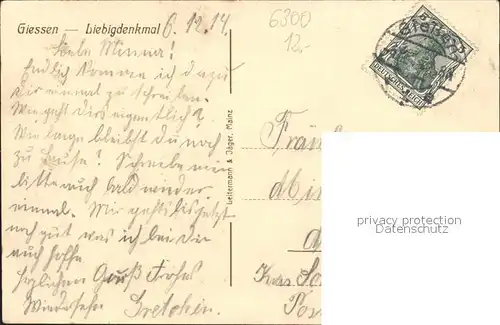 Giessen — Liebigdenkmal
6.12.14
6300
12,-
Liebe Minna!
Endlich komme ich dazu
dir einmal zu schreiben.
Wie geht dirs eigentlich?
Wie lange bleibst du noch
zu Hause? Schreibe mir
bitte auch bald wieder
einmal. Mir gehts bis jetzt
noch gut was ich bei dir
auch hoffe.
Herzlichen Gruß Frohes
Wiedersehn Gretchen.
Leitermann & Jäger, Mainz
DEUTSCHES REICH
privacy protection
Datenschutz